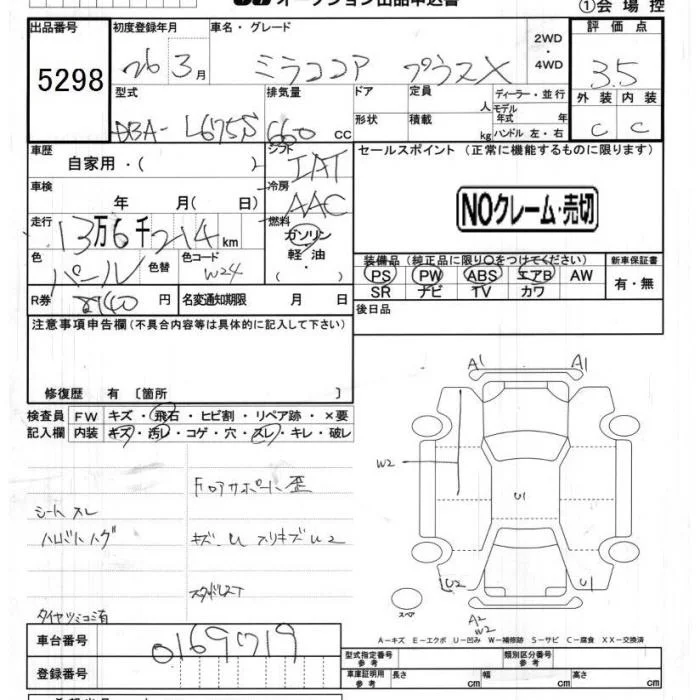 オークション出品申込書
①会場控
出品番号 初度登録年月 車名・グレード 評価点
5298 26 3月 ミラココア プラスX 2WD・4WD 3.5
型式 排気量 ドア 定員 人 ディーラー・並行 外装 内装
DBA-L675S 660 cc 形状 積載 kg モデル年式 年 ハンドル 左・右 C C
車歴 シフト セールスポイント (正常に機能するものに限ります)
自家用・( ) IAT
車検 冷房
年 月( 日) AAC NOクレーム・売切
走行 燃料
13万6千214km ガソリン・軽油・( )
色 色替 色コード 装備品 (純正品に限り○をつけてください) 新車保証書
パール W24 PS PW ABS エアB AW 有・無
SR ナビ TV カワ
R券 円 名変通知期限 月 日 後日品
注意事項申告欄(不具合内容等は具体的に記入して下さい)
修復歴 有 〔箇所 〕
検査員 FW キズ・飛石・ヒビ割・リペア跡・×要
記入欄 内装 キズ・汚レ・コゲ・穴・スレ・キレ・破レ
A1 A1
W2
U1
Fロアサポート歪
シートスレ
キズ・U スリキズU2
U2 U1
スタッドレスT
スペア
A2
W2
タイヤツミコミ有
A-キズ E-エクボ U-凹み W-補修跡 S-サビ C-腐食 XX-交換済
車台番号 0169719 型式指定番号 参考 類別区分番号 参考
登録番号 車庫証明用 参考 長さ cm 幅 cm 高さ cm